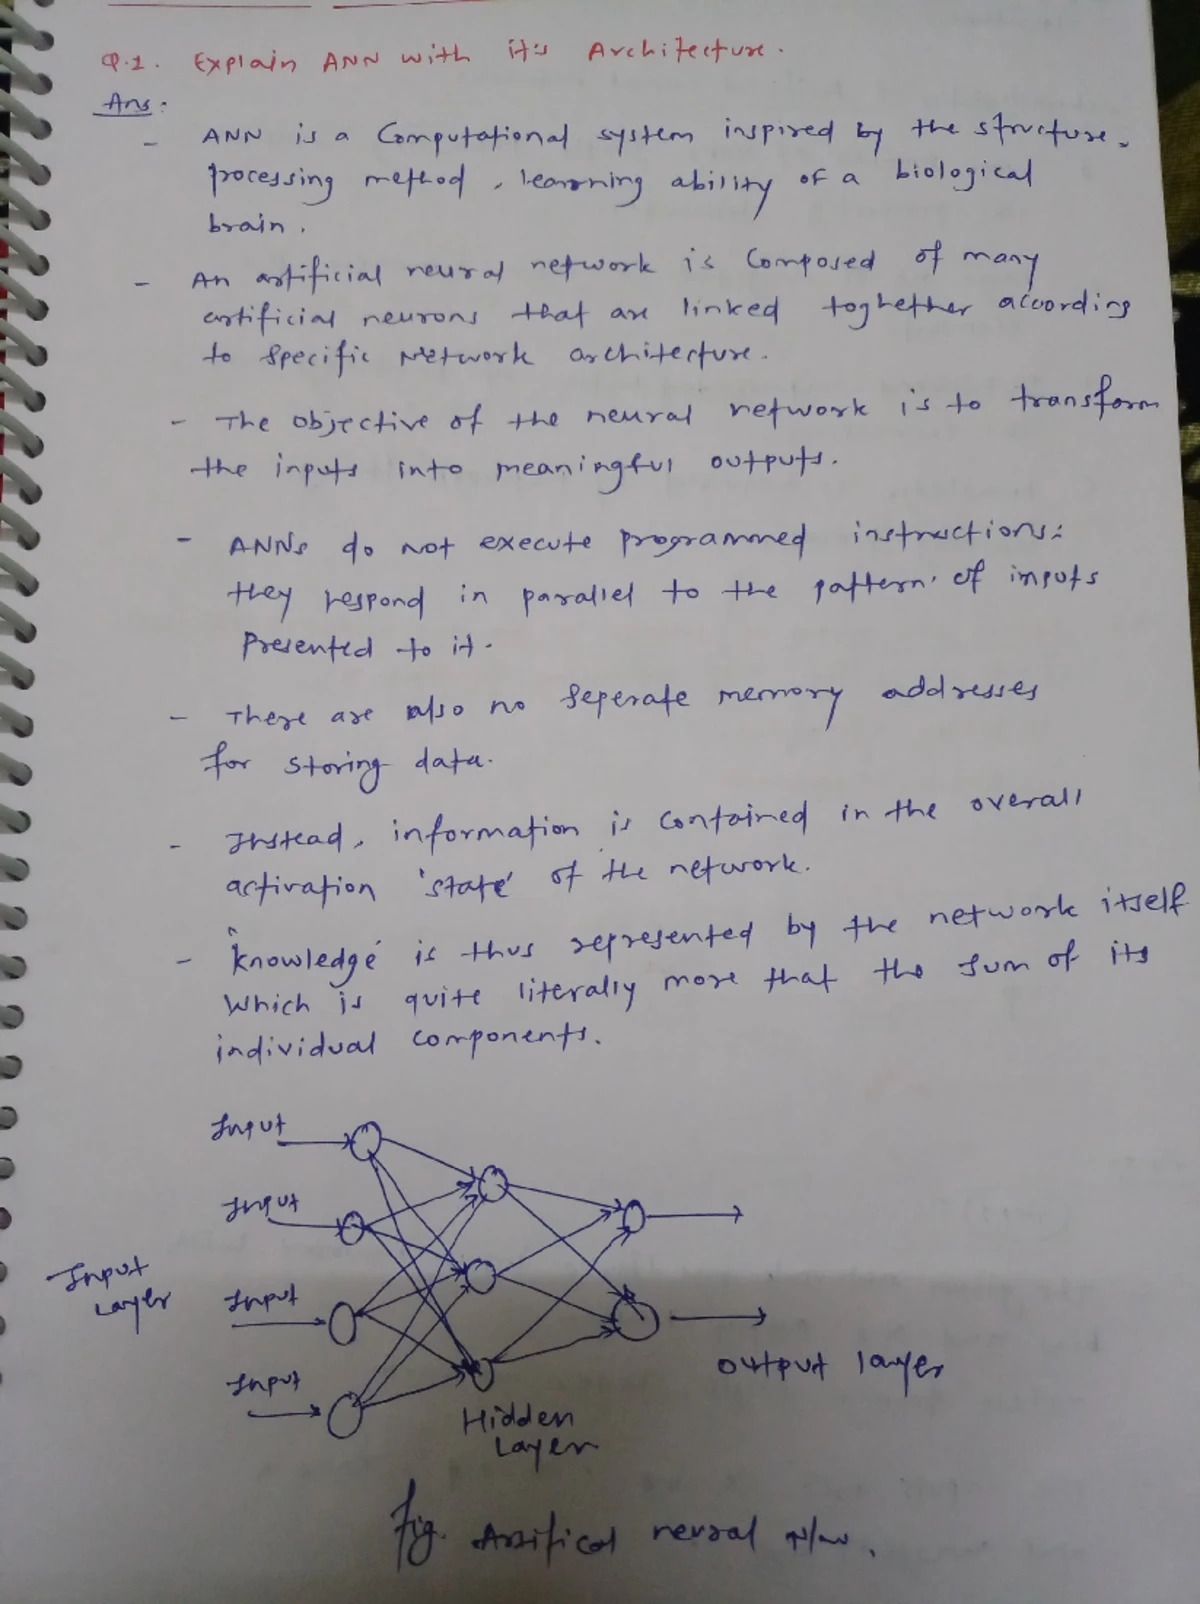 Q.1. Explain ANN with it's Architecture.
Ans:
- ANN is a Computational system inspired by the structure,
processing method, learning ability of a biological
brain.
- An artificial neural network is Composed of many
artificial neurons that are linked toghether according
to specific Network architecture.
- The objective of the neural network is to transform
the inputs into meaningful outputs.
- ANNs do not execute programmed instructions:
they respond in parallel to the pattern of inputs
Presented to it.
- There are also no seperate memory addresses
for storing data.
- Instead, information is contained in the overall
activation 'state' of the network.
- 'knowledge' is thus represented by the network itself
which is quite literally more that the sum of its
individual components.
Input
Input
Input
Layer
Input
Input
output layer
Hidden
Layer
fig. Artifical neural N/w.